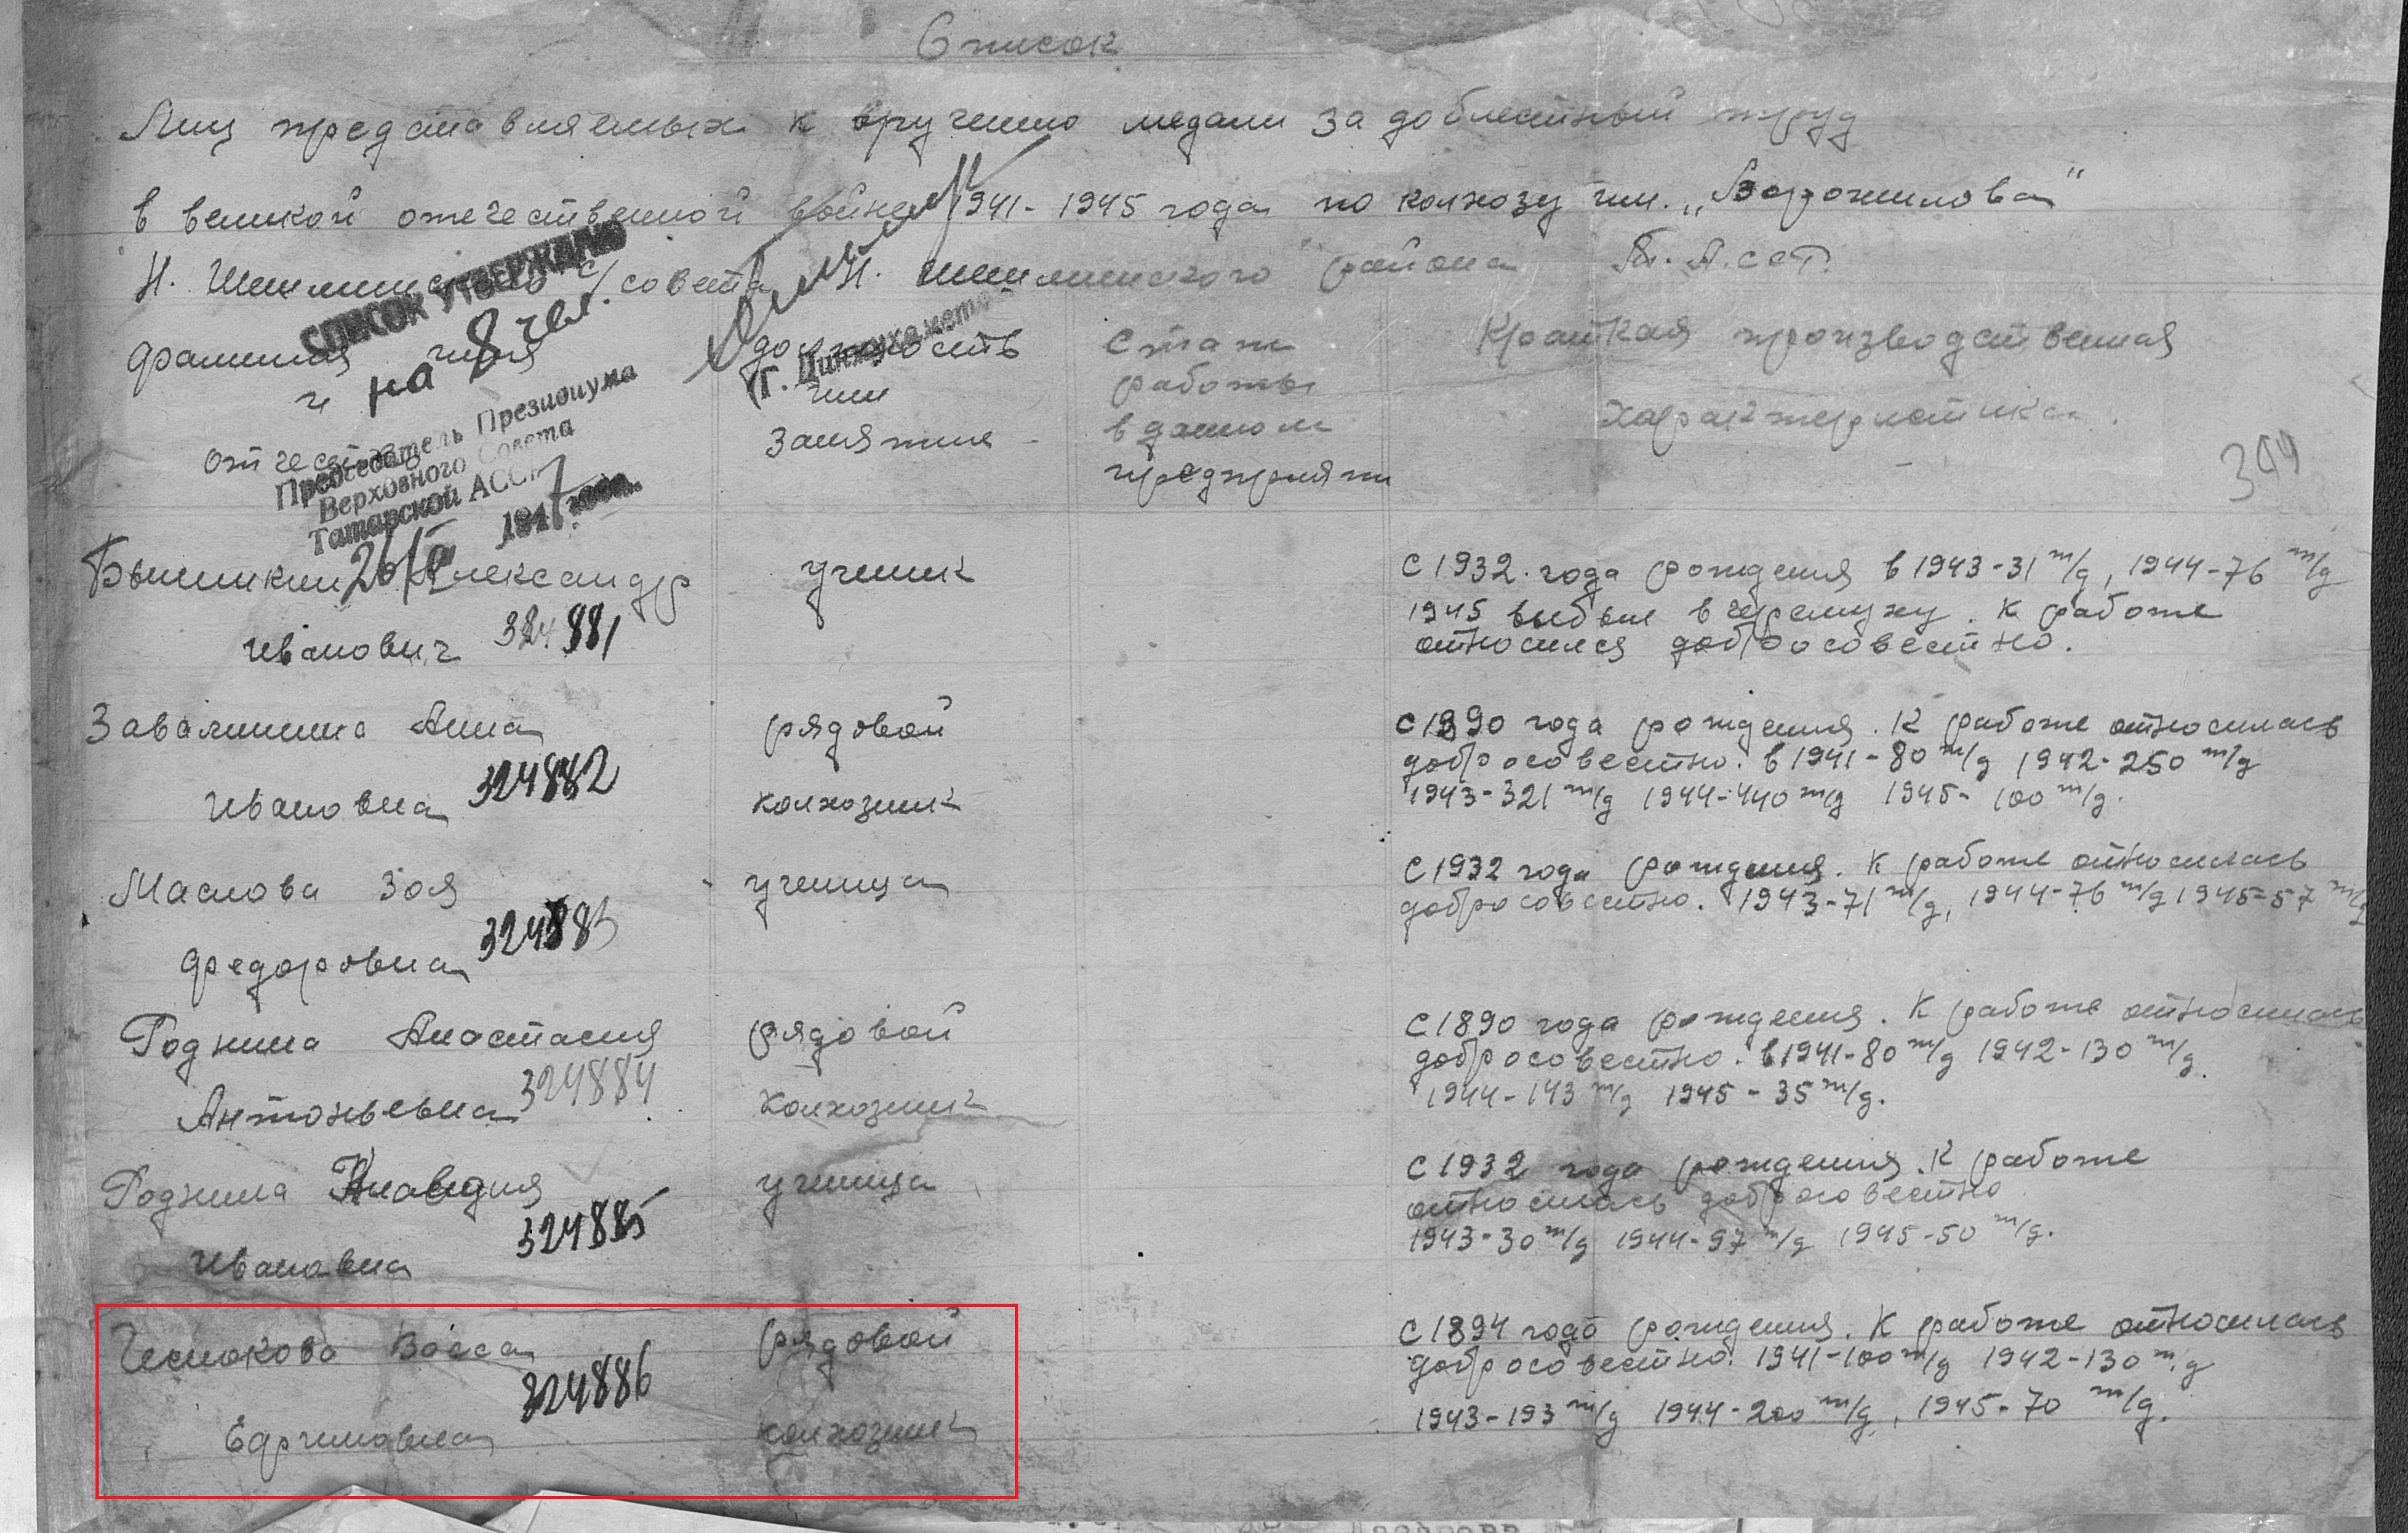 Список
Лиц представляемых к вручению медали за доблестный труд
в великой отечественной войне 1941-1945 года по колхозу им. „Ворошилова"
Н. Шешминского с/совета Н. Шешминского района Т.А.ССР.
СПИСОК УТВЕРЖДАЮ
на 8 чел.
Председатель Президиума
Верховного Совета
Татарской АССР
26/V 1947 года.
Фамилия имя
и
отчество
должность
или
занятие
Стаж
работы
в данном
предприяти
Краткая производственная
характеристика.
344
Бышкин Александр
Иванович 324881
ученик
С 1932 года рождения в 1943-31 т/д, 1944-76 т/д
1945 выбыл в Черемуху. К работе
относился добросовестно.
Завалишина Анна
Ивановна 324882
рядовой
колхозник
С 1890 года рождения. К работе относилась
добросовестно. в 1941-80 т/д 1942-250 т/д
1943-321 т/д 1944-440 т/д 1945-100 т/д.
Маслова Зоя
Федоровна 324883
ученица
С 1932 года рождения. К работе относилась
добросовестно. 1943-71 т/д, 1944-76 т/д 1945-57 т/д
Роднина Анастасия
Антоньевна 324884
рядовой
колхозник
С 1890 года рождения. К работе относилась
добросовестно. в 1941-80 т/д 1942-130 т/д
1944-143 т/д 1945-35 т/д.
Роднина Клавдия
Ивановна 324885
ученица
С 1932 года рождения. К работе
относилась добросовестно
1943-30 т/д 1944-97 т/д 1945-50 т/д.
Чеснокова Васса
Ефимовна 324886
рядовой
колхозник
С 1894 года рождения. К работе относилась
добросовестно. 1941-100 т/д 1942-130 т/д
1943-193 т/д 1944-200 т/д, 1945-70 т/д.